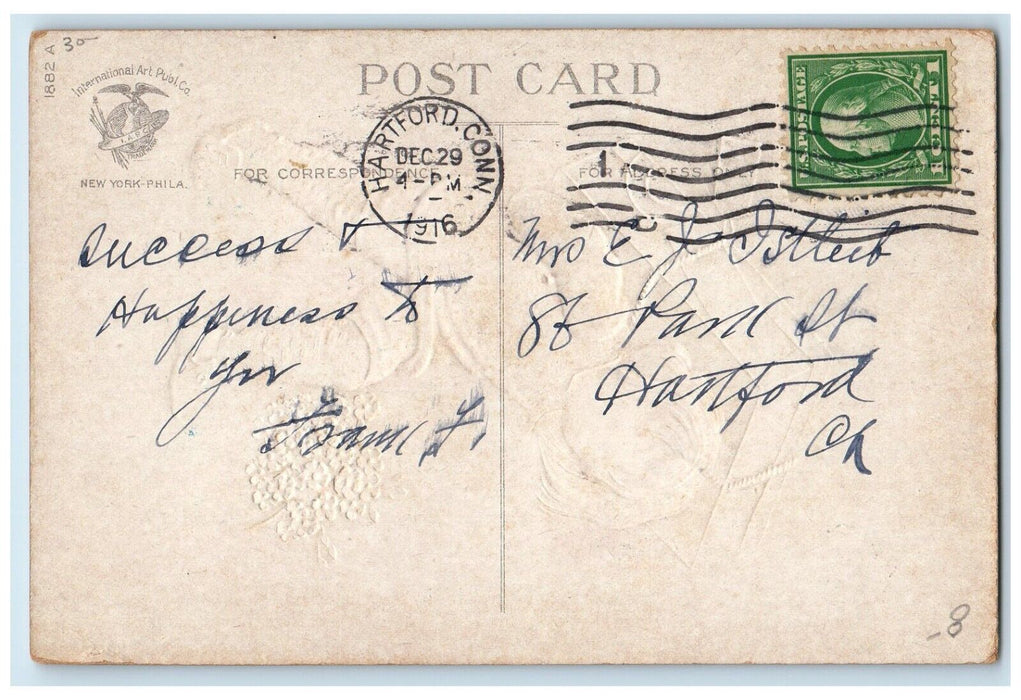 1882 A
30
International Art Publ. Co.
I.A.P.C.
TRADEMARK
NEW YORK-PHILA.
POST CARD
FOR CORRESPONDENCE
FOR ADDRESS ONLY
HARTFORD, CONN.
DEC 29
4-PM
1916
1
U.S. POSTAGE
1 CENT 1
Success &
Happiness to
you
Frank F.
Mrs E J
Park St
Hartford
-8